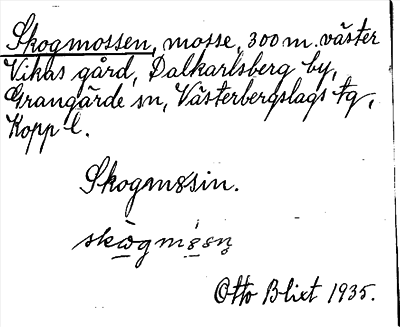 Skogmossen, mosse, 300 m. väster
Vikas gård, Dalkarlsberg by,
Grangärde sn, Västerbergslags tg,
Kopp l.
Skogmosin.
Otto Blixt 1935.